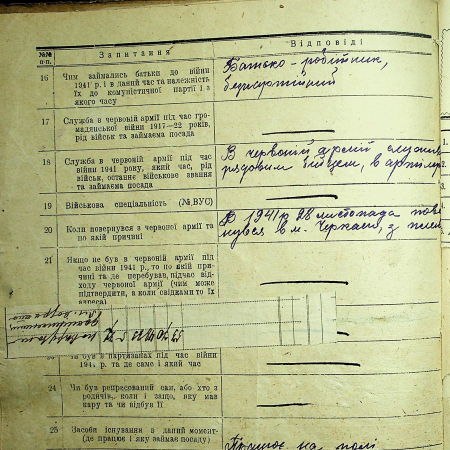 №№ п.п.
Запитання
Відповіді
16
Чим займались батьки до війни
1941 р. і в даний час та належність
їх до комуністичної партії і з
якого часу
Батько - робітник,
безпартійний
17
Служба в червоній армії під час гро-
мадянської війни 1917—22 років,
рід військ та займаєма посада
18
Служба в червоній армії під час
війни 1941 року, який час, рід
військ, останнє військове звання
та займаєма посада
В червоній армії служив
рядовим бійцем, в артилер
19
Військова спеціальність (№ ВУС)
20
Коли повернувся з червоної армії та
по якій причині
В 1941 р. 28 листопада пове
нувся в м. Черкаси, з
21
Якщо не був в червоній армії під
час війни 1941 р., то по якій при-
чині та де перебував, підчас від-
ходу червоної армії (чим може
підтвердити, а коли свідками то їх
адреса)
Чи був в партизанах під час війни
1941 р. та де саме і який час
24
Чи був репресований сам, або хто з
родичів, коли і защо, яку мав
кару та чи відбув її
25
Засоби існування в даний момент-
(де працює і яку займає посаду)
Працює на полі